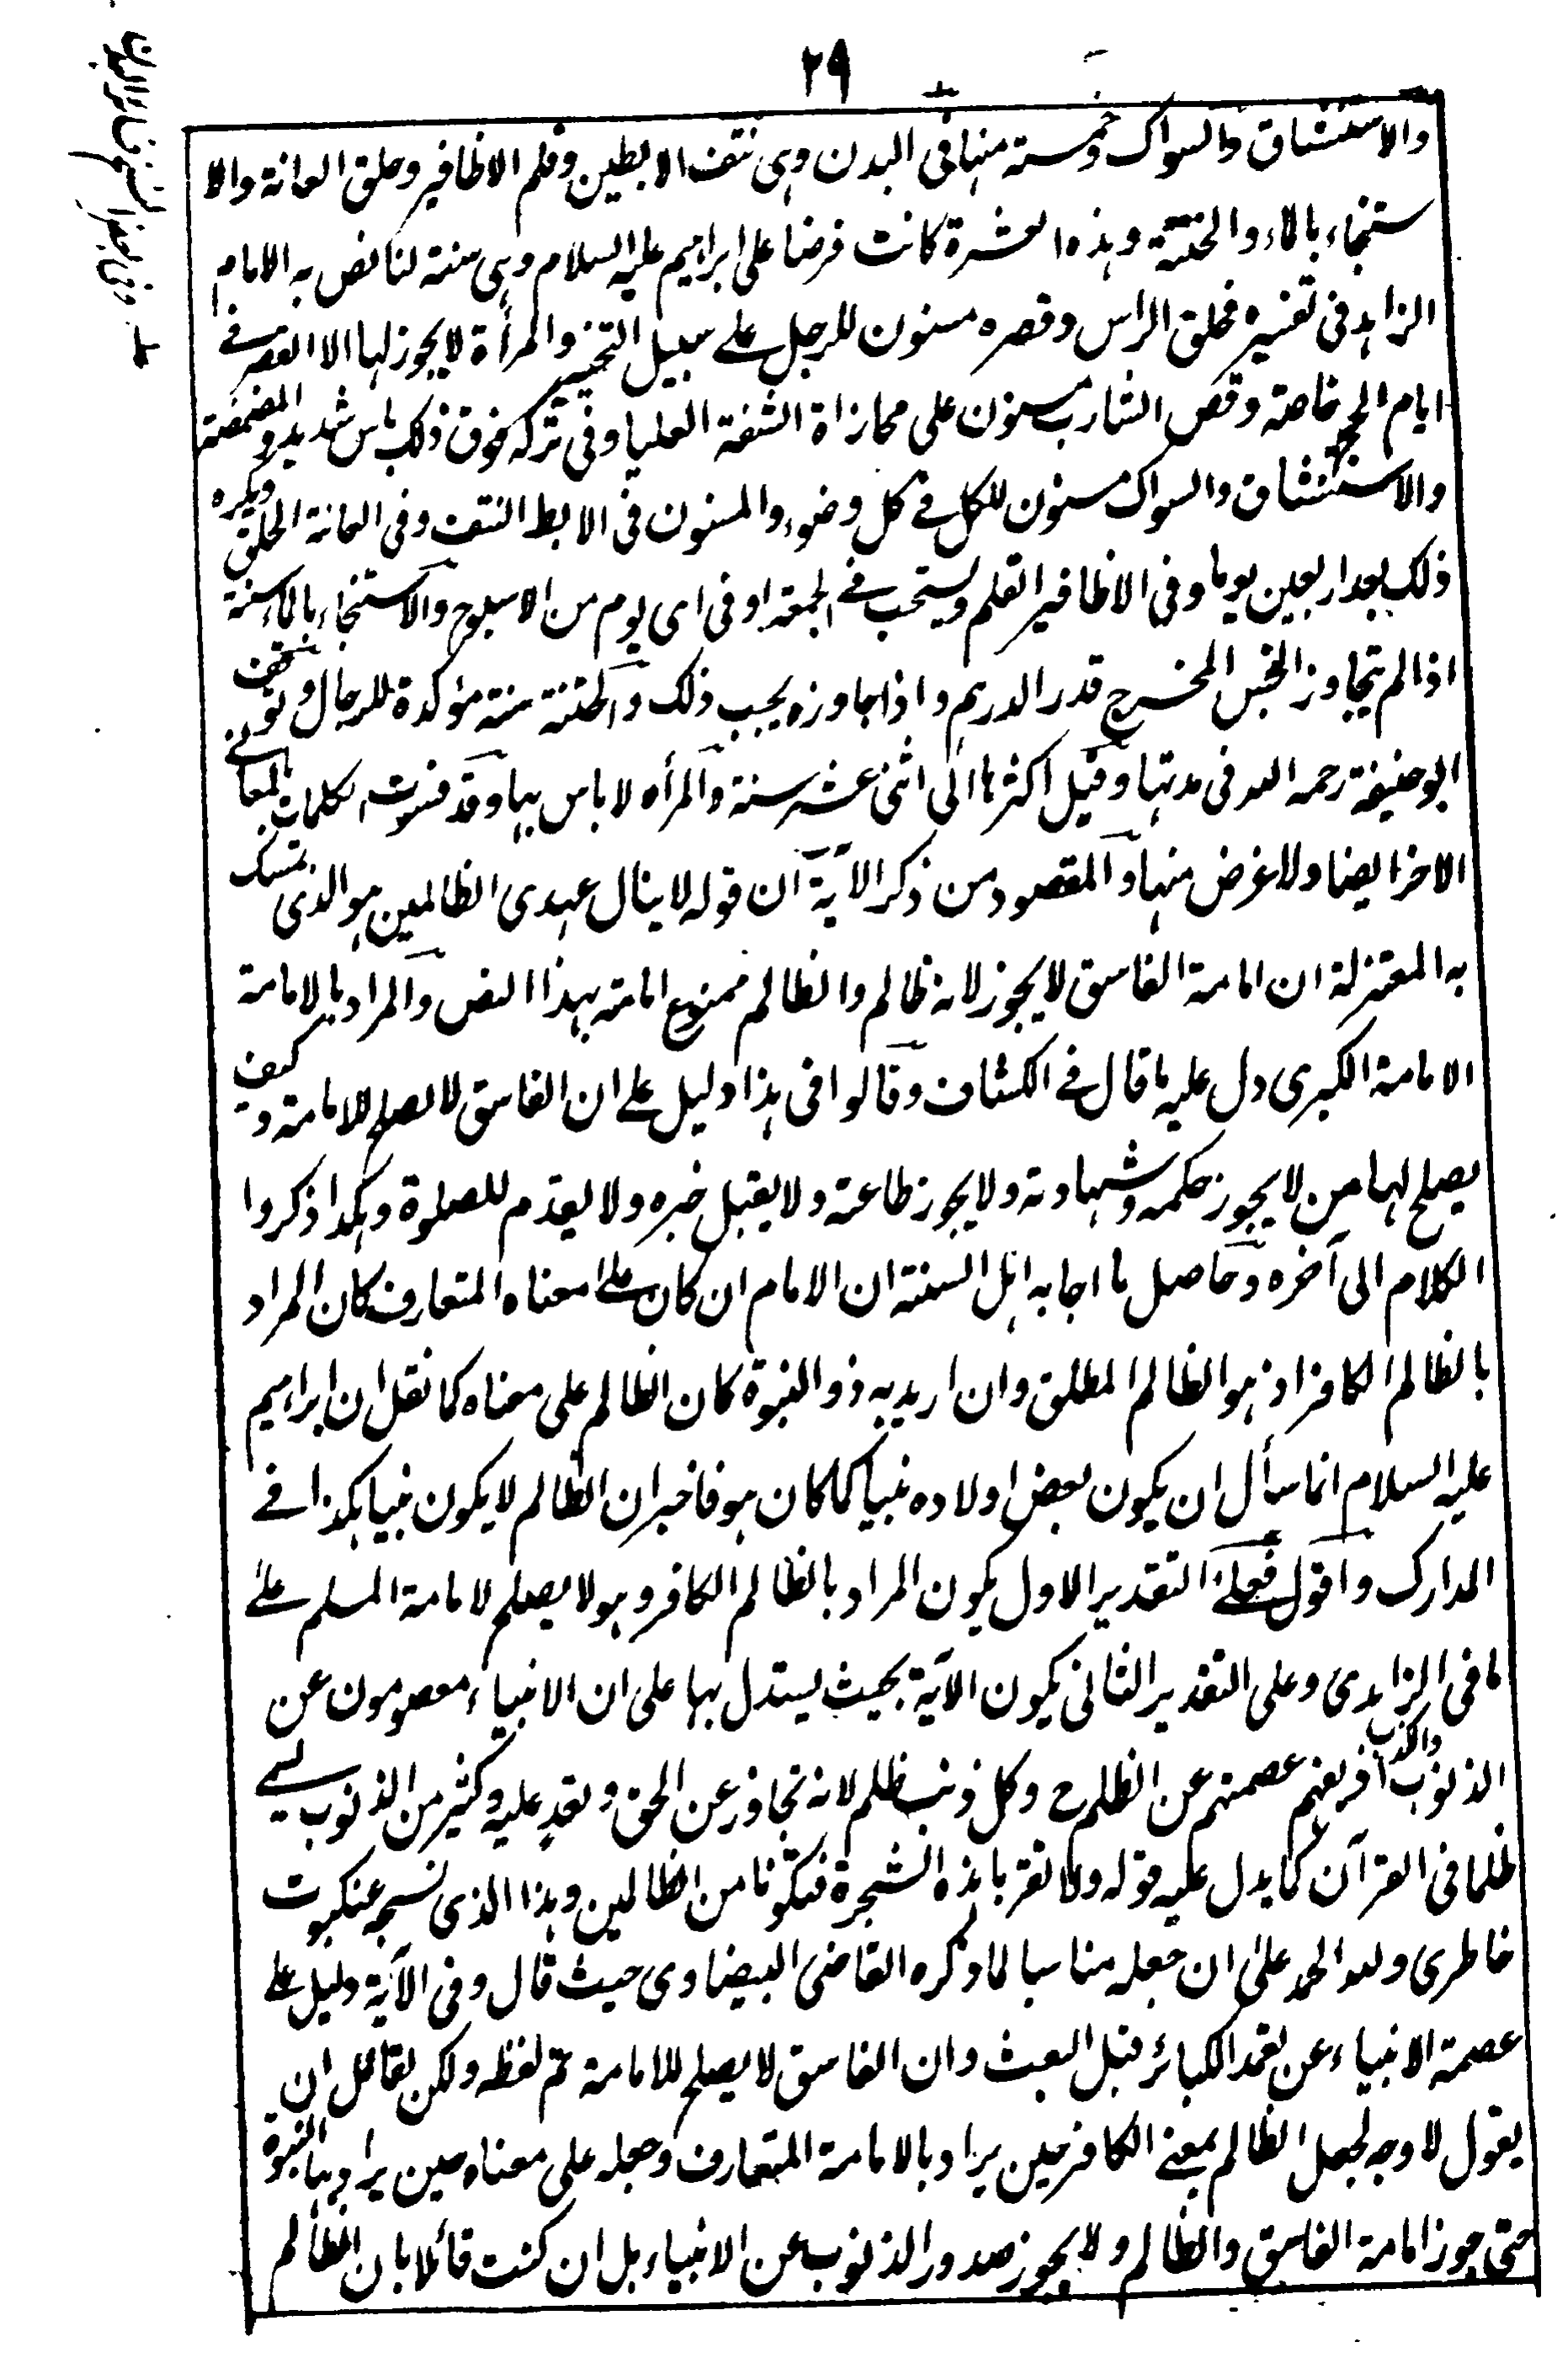 ٢٩
والاستنشاق والسواك وخمسة منها فى البدن وهى نتف الابطين وقلم الاظافير وحلق العانة والا
ستنجاء بالماء والختنة وهذه العشرة كانت فرضا على ابراهيم عليه السلام وهى سنة لنا نص به الامام
الزاهد فى تفسيره فحلق الراس وقصره مسنون للرجل على سبيل التخيير والمرأة لا يجوز لها الا القصر فے
ايام الحج خاصة وقص الشارب مسنون على محازاة الشفة العليا وفى تركه فوق ذلك باس شديد والمضمضة
والاستنشاق والسواك مسنون للكل فے كل وضوء والمسنون فى الابط النتف وفى العانة الحلق ويكره
ذلك بعد اربعين يوما وفى الاظافير القلم ويستحب فے الجمعة او فى اى يوم من الاسبوع والاستنجاء بالماء سنة
اذا لم يتجاوز النجس المخرج قدر الدرهم واذا جاوزه يجب ذلك والختنة سنة مؤكدة للرجال وتوقف
ابو حنيفة رحمه الله فى مدتها وقيل اكثرها الى اثنى عشر سنة والمرأه لا باس بها وقد فسرت الكلمات بالمعانے
الاخر ايضا ولا غرض منها والمقصود من ذكر الآية ان قوله لا ينال عهدى الظالمين هو الذى تمسك
به المعتزلة ان امامة الفاسق لا يجوز لانه ظالم والظالم ممنوع امامته بهذا النص والمراد بالامامة
الامامة الكبرى دل عليه ما قال فے الكشاف وقالوا فى هذا دليل على ان الفاسق لا يصلح للامامة وكيف
يصلح لها من لا يجوز حكمه وشهادته ولا يجوز طاعته ولا يقبل خبره ولا يقدم للصلوة وهكذا ذكروا
الكلام الى آخره وحاصل ما اجابه اهل السنة ان الامام ان كان على معناه المتعارف كان المراد
بالظالم الكافر اذ هو الظالم المطلق وان اريد به ذو النبوة كان الظالم على معناه كما نقل ان ابراهيم
عليه السلام انما سأل ان يكون بعض اولاده نبيا كما كان هو فاخبر ان الظالم لا يكون نبيا هكذا فے
المدارك واقول فعلى التقدير الاول يكون المراد بالظالم الكافر وهو لا يصلح لامامة المسلم على
ما فى الزاهدى وعلى التقدير الثانى يكون الآية بحيث يستدل بها على ان الانبياء معصومون عن
الذنوب والكذب اذ يفهم عصمتهم عن الظلم ح وكل ذنب ظلم لانه تجاوز عن الحق وتعد عليه وكثير من الذنوب سمے
ظلما فى القرآن كما يدل عليه قوله ولا تقربا هذه الشجرة فتكونا من الظالمين وهذا الذى نسجه عنكبوت
خاطرى ولله الحمد على ان جعله مناسبا لما ذكره القاضى البيضاوى حيث قال وفى الآية دليل على
عصمة الانبياء عن تعمد الكبائر قبل البعث وان الفاسق لا يصلح للامامة تم لفظه ولكن لقائل ان
يقول لا وجه لجعل الظالم بمعنے الكافر حين يراد بالامامة المتعارف وجعله على معناه حين يراد بها النبوة
حتى جوز امامة الفاسق والظالم ولا يجوز صدور الذنوب عن الانبياء بل ان كنت قائلا بان الظالم